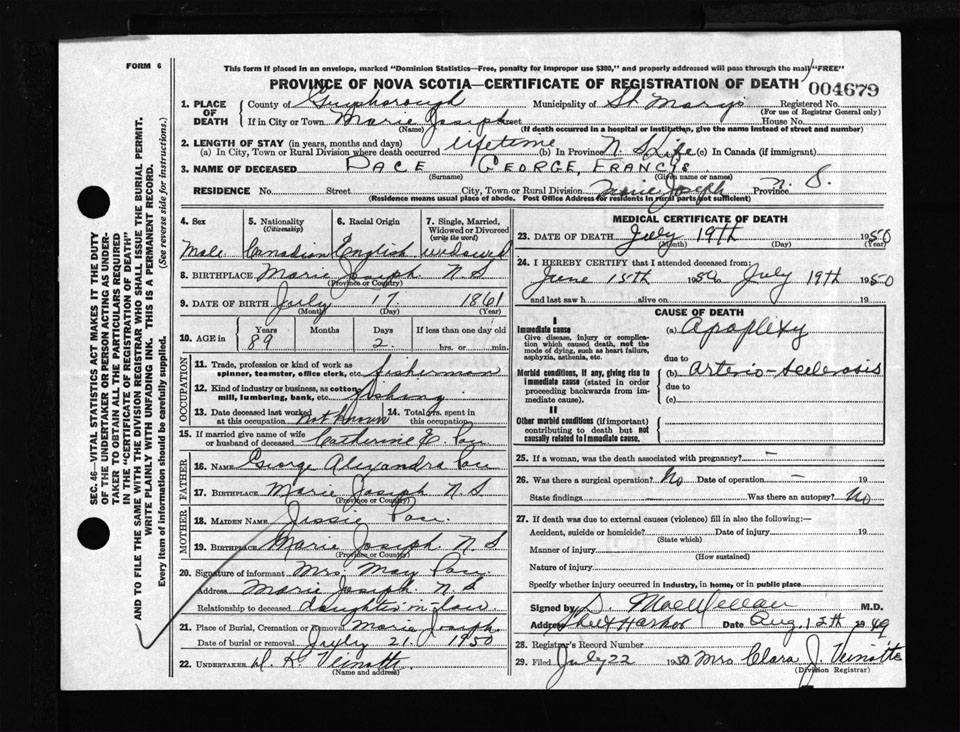 FORM 6
This form if placed in an envelope, marked "Dominion Statistics—Free, penalty for improper use $300," and properly addressed will pass through the mail "FREE"
PROVINCE OF NOVA SCOTIA—CERTIFICATE OF REGISTRATION OF DEATH
004679
1. PLACE OF DEATH
County of Guysborough Municipality of St. Mary's Registered No.
(For use of Registrar General only)
If in City or Town Marie Joseph Street House No.
(Name) (If death occurred in a hospital or institution, give the name instead of street and number)
2. LENGTH OF STAY (in years, months and days)
(a) In City, Town or Rural Division where death occurred lifetime (b) In Province N. S. Life (c) In Canada (if immigrant)
3. NAME OF DECEASED PACE GEORGE, FRANCIS.
(Surname) (Given name or names)
RESIDENCE No. Street City, Town or Rural Division Marie Joseph Province N. S.
(Residence means usual place of abode. Post Office Address for residents in rural parts not sufficient)
4. Sex
Male
5. Nationality
(Citizenship)
Canadian
6. Racial Origin
English
7. Single, Married, Widowed or Divorced
(write the word)
widowed
8. BIRTHPLACE Marie Joseph N S
(Province or Country)
9. DATE OF BIRTH July 17 1861
(Month) (Day) (Year)
10. AGE in
Years Months Days If less than one day old
89 2 hrs. or min.
OCCUPATION
11. Trade, profession or kind of work as spinner, teamster, office clerk, etc. fisherman
12. Kind of industry or business, as cotton mill, lumbering, bank, etc. fishing
13. Date deceased last worked at this occupation Not Known
14. Total yrs. spent in this occupation
15. If married give name of wife or husband of deceased Catherine E. Pace
FATHER
16. NAME George Alexandra Pace
17. BIRTHPLACE Marie Joseph N S
(Province or Country)
MOTHER
18. MAIDEN NAME Jessie Pace.
19. BIRTHPLACE Marie Joseph. N S
(Province or Country)
20. Signature of informant Mrs May Pace
Address Marie Joseph N. S
Relationship to deceased daughter in law
21. Place of Burial, Cremation or Removal Marie Joseph.
Date of burial or removal July 21. 1950
22. UNDERTAKER
(Name and address)
MEDICAL CERTIFICATE OF DEATH
23. DATE OF DEATH July 19th 1950
(Month) (Day) (Year)
24. I HEREBY CERTIFY that I attended deceased from:
June 15th 1950 to July 19th 1950
and last saw h alive on 19
CAUSE OF DEATH
I
Immediate cause
Give disease, injury or complication which caused death, not the mode of dying, such as heart failure, asphyxia, asthenia, etc.
(a) Apoplexy
due to
Morbid conditions, if any, giving rise to immediate cause (stated in order proceeding backwards from immediate cause).
(b) Arterio-Sclerosis
due to
(c)
II
Other morbid conditions (if important) contributing to death but not causally related to immediate cause.
25. If a woman, was the death associated with pregnancy? —
26. Was there a surgical operation? No Date of operation — 19
State findings Was there an autopsy? No
27. If death was due to external causes (violence) fill in also the following:—
Accident, suicide or homicide? Date of injury 19
(State which)
Manner of injury
(How sustained)
Nature of injury
Specify whether injury occurred in industry, in home, or in public place
Signed by D. M.D.
Address Sheet Harbor Date Aug. 12th 1949
28. Registrar's Record Number
29. Filed July 22 1950 Mrs Clara J. Veinotte
(Division Registrar)
SEC. 46—VITAL STATISTICS ACT MAKES IT THE DUTY
OF THE UNDERTAKER OR PERSON ACTING AS UNDER-
TAKER TO OBTAIN ALL THE PARTICULARS REQUIRED
IN THE "CERTIFICATE OF REGISTRATION OF DEATH"
AND TO FILE THE SAME WITH THE DIVISION REGISTRAR WHO SHALL ISSUE THE BURIAL PERMIT.
WRITE PLAINLY WITH UNFADING INK. THIS IS A PERMANENT RECORD.
Every item of information should be carefully supplied. (See reverse side for instructions.)